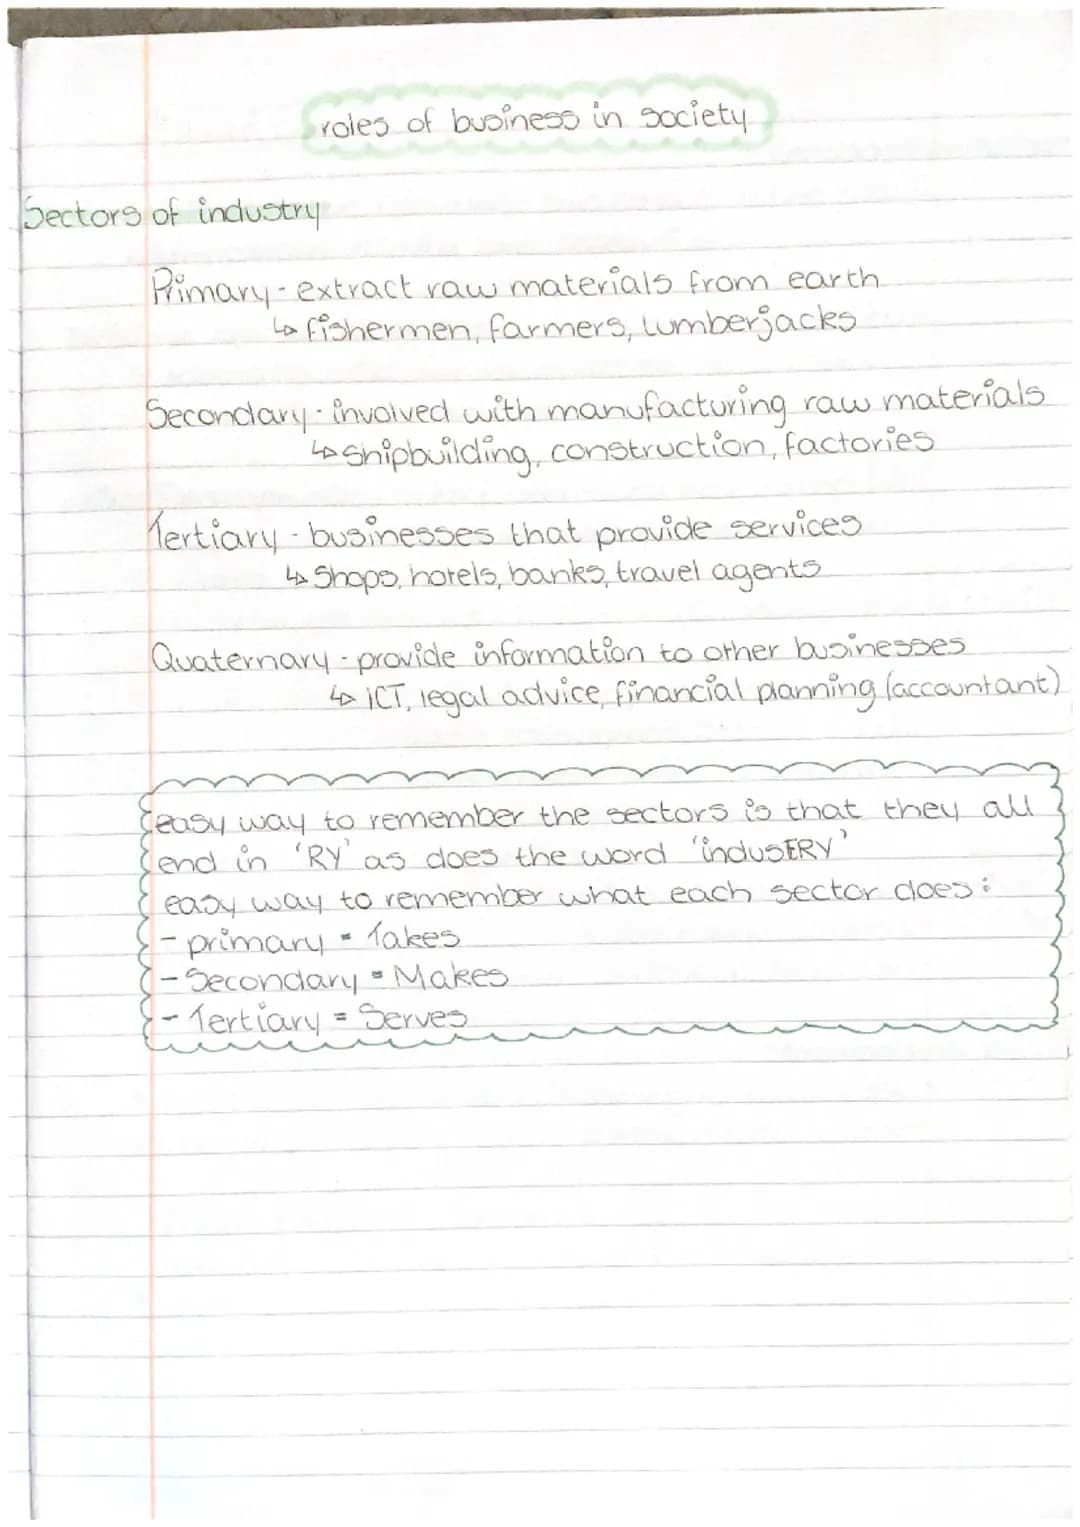 roles of business in society
Sectors of industry
Primary - extract raw materials from earth
↳ fishermen, farmers, lumberjacks
Secondary - involved with manufacturing raw materials
↳ shipbuilding, construction, factories
Tertiary - businesses that provide services
↳ Shops, hotels, banks, travel agents
Quaternary - provide information to other businesses
↳ ICT, legal advice, financial planning (accountant)
easy way to remember the sectors is that they all
end in 'RY' as does the word 'indusERY'
easy way to remember what each sector does:
- primary = Takes
- Secondary = Makes
- Tertiary = Serves